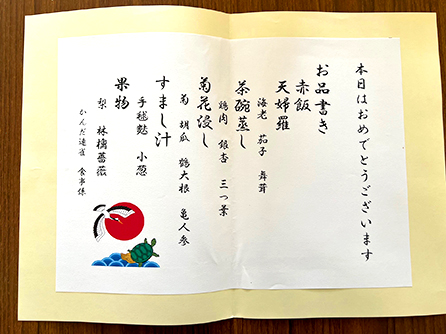 本日はおめでとうございます
お品書き
赤飯
天婦羅
海老 茄子 舞茸
茶碗蒸し
鶏肉 銀杏 三つ葉
菊花浸し
菊 胡瓜 鶴大根 亀人参
すまし汁
手毬麩 小葱
果物
梨 林檎薔薇
かんだ連雀 食事係